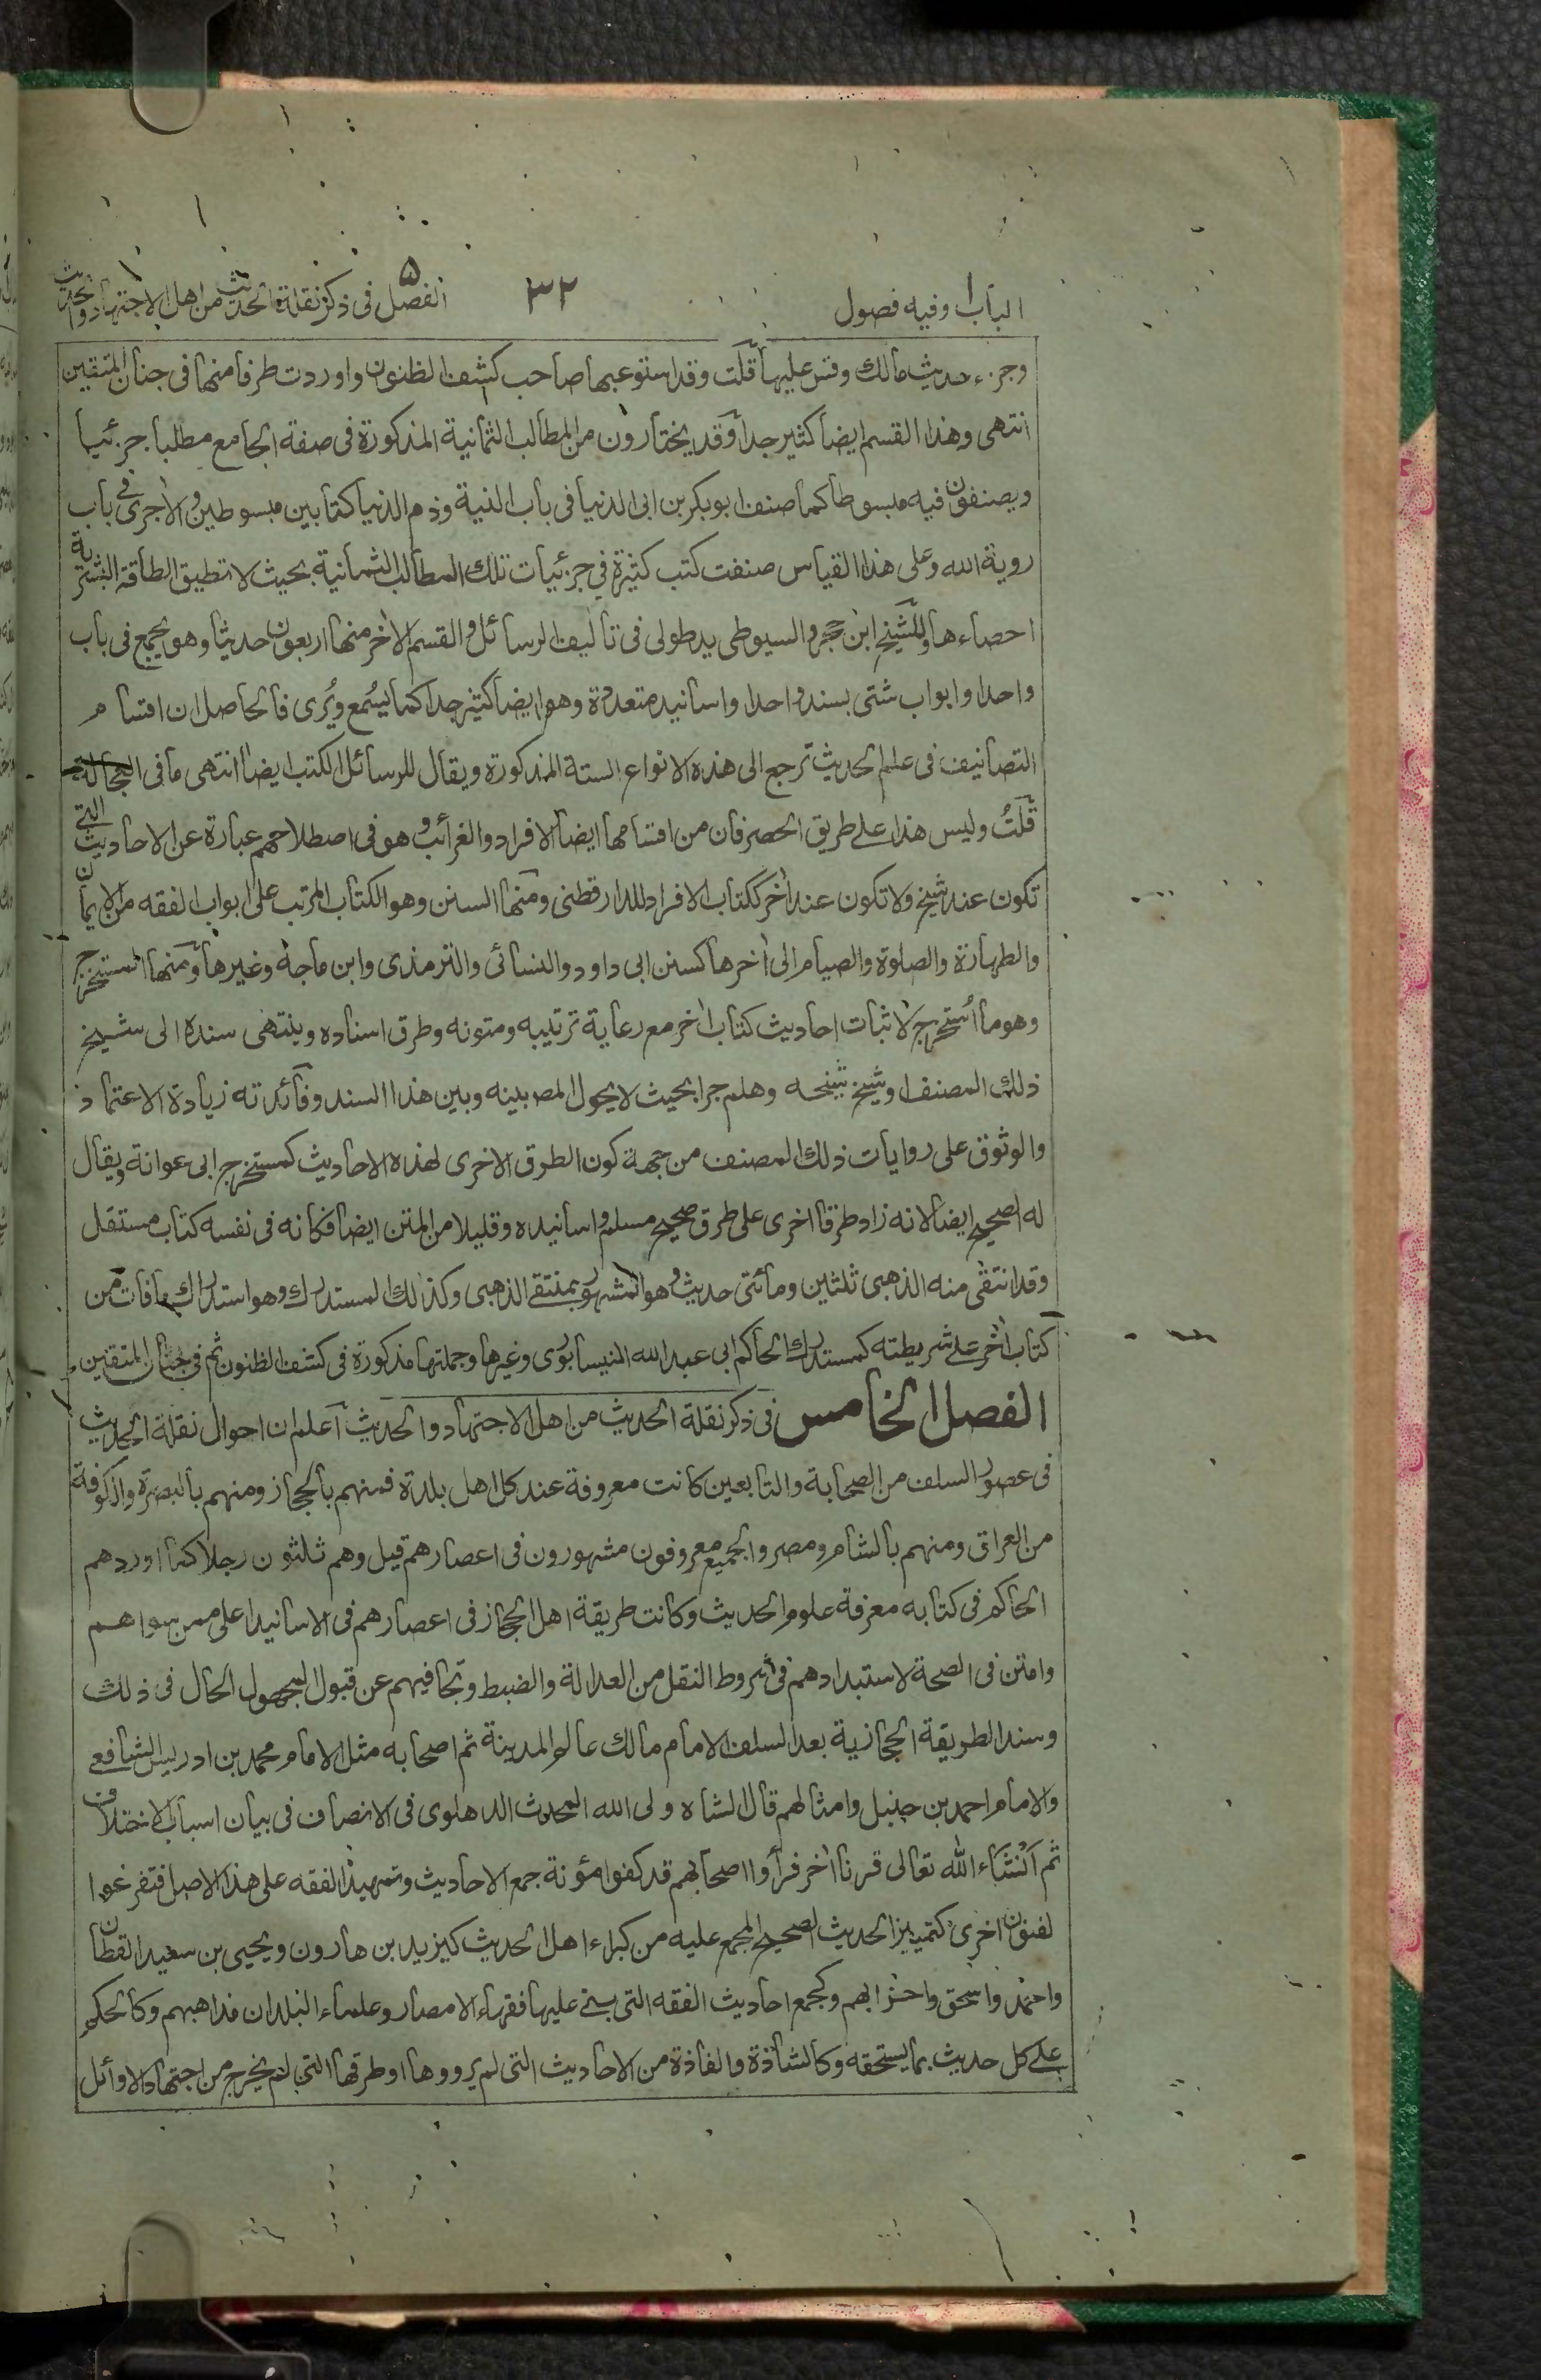 الباب ا وفيه فصول
٣٢
الفصل ۵ فى ذكر نقلة الحديث من اهل الاجتهاد والحديث
وجزء حديث مالك وقس عليها قلت وقد استوعبها صاحب كشف الظنون واوردت طرفا منها فى جنان المتقين
انتهى وهذا القسم ايضا كثير جدا وقد يختارون من المطالب الثمانية المذكورة فى صفة الجامع مطلبا جزئيا
ويصنفون فيه مبسوطا كما صنف ابو بكر بن ابى الدنيا فى باب النية وذم الدنيا كتابين مبسوطين والآجرى فى باب
روية الله وعلى هذا القياس صنفت كتب كثيرة فى جزئيات تلك المطالب الثمانية بحيث لا تطيق الطاقة البشرية
احصاءها وللشيخ ابن حجر والسيوطى يد طولى فى تاليف الرسائل والقسم الاخر منها اربعون حديثا وهو يجمع فى باب
واحد او ابواب شتى بسند واحد او اسانيد متعددة وهو ايضا كثير جدا كما يسمع ويُرى فالحاصل ان اقسام
التصانيف فى علم الحديث ترجع الى هذه الانواع الستة المذكورة ويقال للرسائل الكتب ايضا انتهى ما فى العجالة
قلتُ وليس هذا على طريق الحصر فان من اقسامها ايضا الافراد والغرائب وهو فى اصطلاحهم عبارة عن الاحاديث التى
تكون عند شيخ ولا تكون عند اخر ككتاب الافراد للدارقطنى ومنها السنن وهو الكتاب المرتب على ابواب الفقه من الايمان
والطهارة والصلوة والصيام الى اخرها كسنن ابى داود والنسائى والترمذى وابن ماجة وغيرها ومنها المستخرج
وهو ما اُستخرج لاثبات احاديث كتاب اخر مع رعاية ترتيبه ومتونه وطرق اسناده وينتهى سنده الى شيخ
ذلك المصنف او شيخ شيخه وهلم جرا بحيث لا يحول المصـ بينه وبين هذا السند وفائدته زيادة الاعتماد
والوثوق على روايات ذلك المصنف من جهة كون الطرق الاخرى لهذه الاحاديث كمستخرج ابى عوانة ويقال
له الصحيح ايضا لانه زاد طرقا اخرى على طرق صحيح مسلم واسانيده وقليلا من المتن ايضا فكانه فى نفسه كتاب مستقل
وقد انتقى منه الذهبى ثلثين ومائتى حديث وهو المشهور بمنتقى الذهبى وكذلك المستدرك وهو استدراك ما فات من
كتاب اخر على شريطته كمستدرك الحاكم ابى عبد الله النيسابورى وغيرها وجملتها مذكورة فى كشف الظنون ثم فى جنان المتقين
الفصل الخامس فى ذكر نقلة الحديث من اهل الاجتهاد والحديث اعلم ان احوال نقلة الحديث
فى عصر السلف من الصحابة والتابعين كانت معروفة عند كل اهل بلدة فمنهم بالحجاز ومنهم بالبصرة والكوفة
من العراق ومنهم بالشام ومصر والجميع معروفون مشهورون فى اعصارهم قيل وهم ثلثون رجلا كما اوردهم
الحاكم فى كتابه معرفة علوم الحديث وكانت طريقة اهل الحجاز فى اعصارهم فى الاسانيد اعلى ممن سواهم
وامتن فى الصحة لاستبدادهم فى شروط النقل من العدالة والضبط وتجافيهم عن قبول المجهول الحال فى ذلك
وسند الطريقة الحجازية بعد السلف الامام مالك عالم المدينة ثم اصحابه مثل الامام محمد بن ادريس الشافعى
والامام احمد بن حنبل وامثالهم قال الشاه ولى الله المحدث الدهلوى فى الانصاف فى بيان اسباب الاختلاف
ثم اَنْشَاء الله تعالى قرنا اخر فرأوا اصحابهم قد كفوا مؤنة جمع الاحاديث وتمهيد الفقه على هذا الاصل فتفرغوا
لفنون اخرى كتمييز الحديث الصحيح المجمع عليه من كبراء اهل الحديث كيزيد بن هارون ويحيى بن سعيد القطان
واحمد واسحق واضرابهم وكجمع احاديث الفقه التى بنى عليها فقهاء الامصار وعلماء البلدان مذاهبهم وكالحكم
على كل حديث بما يستحقه وكالشاذة والفاذة من الاحاديث التى لم يرووها او طرقها التى لم يخرج من اجتهاد الاوائل